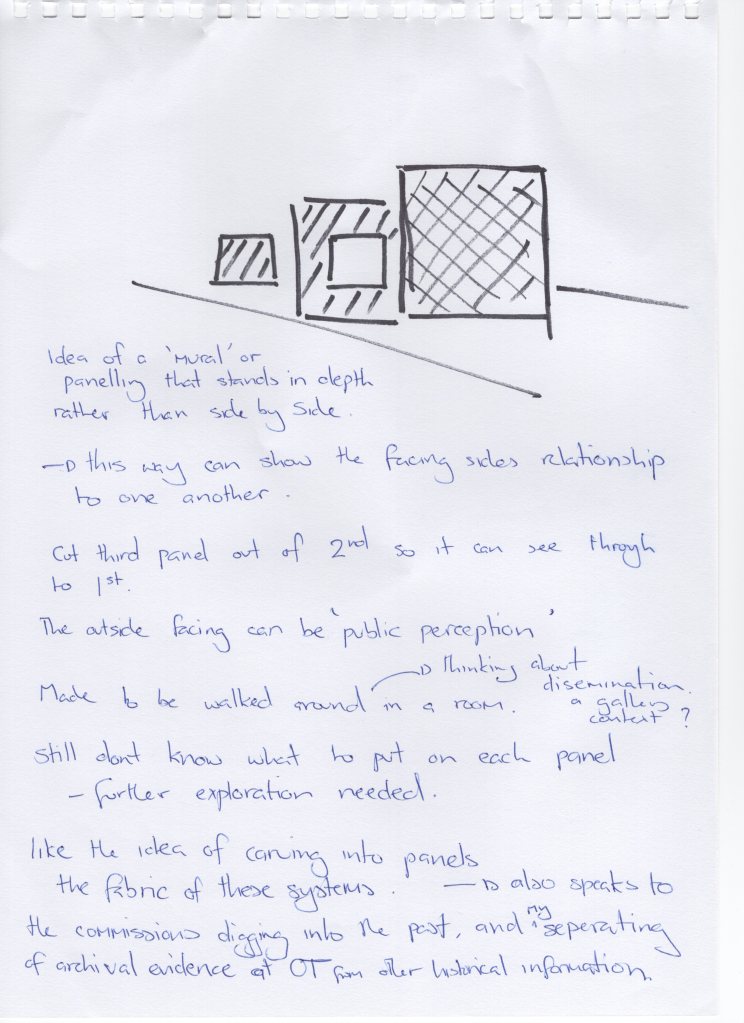 Idea of a 'Mural' or
panelling that stands in depth
rather than side by side.
→ this way can show the facing sides relationship
to one another.
Cut third panel out of 2nd so it can see through
to 1st.
The outside facing can be 'public perception'
→ thinking about
disemination.
a gallery
context?
Made to be walked around in a room.
Still dont know what to put on each panel
- further exploration needed.
like the idea of carving into panels
the fabric of these systems. → also speaks to
the commissions digging into the past, and my seperating
of archival evidence at OT from other historical information.